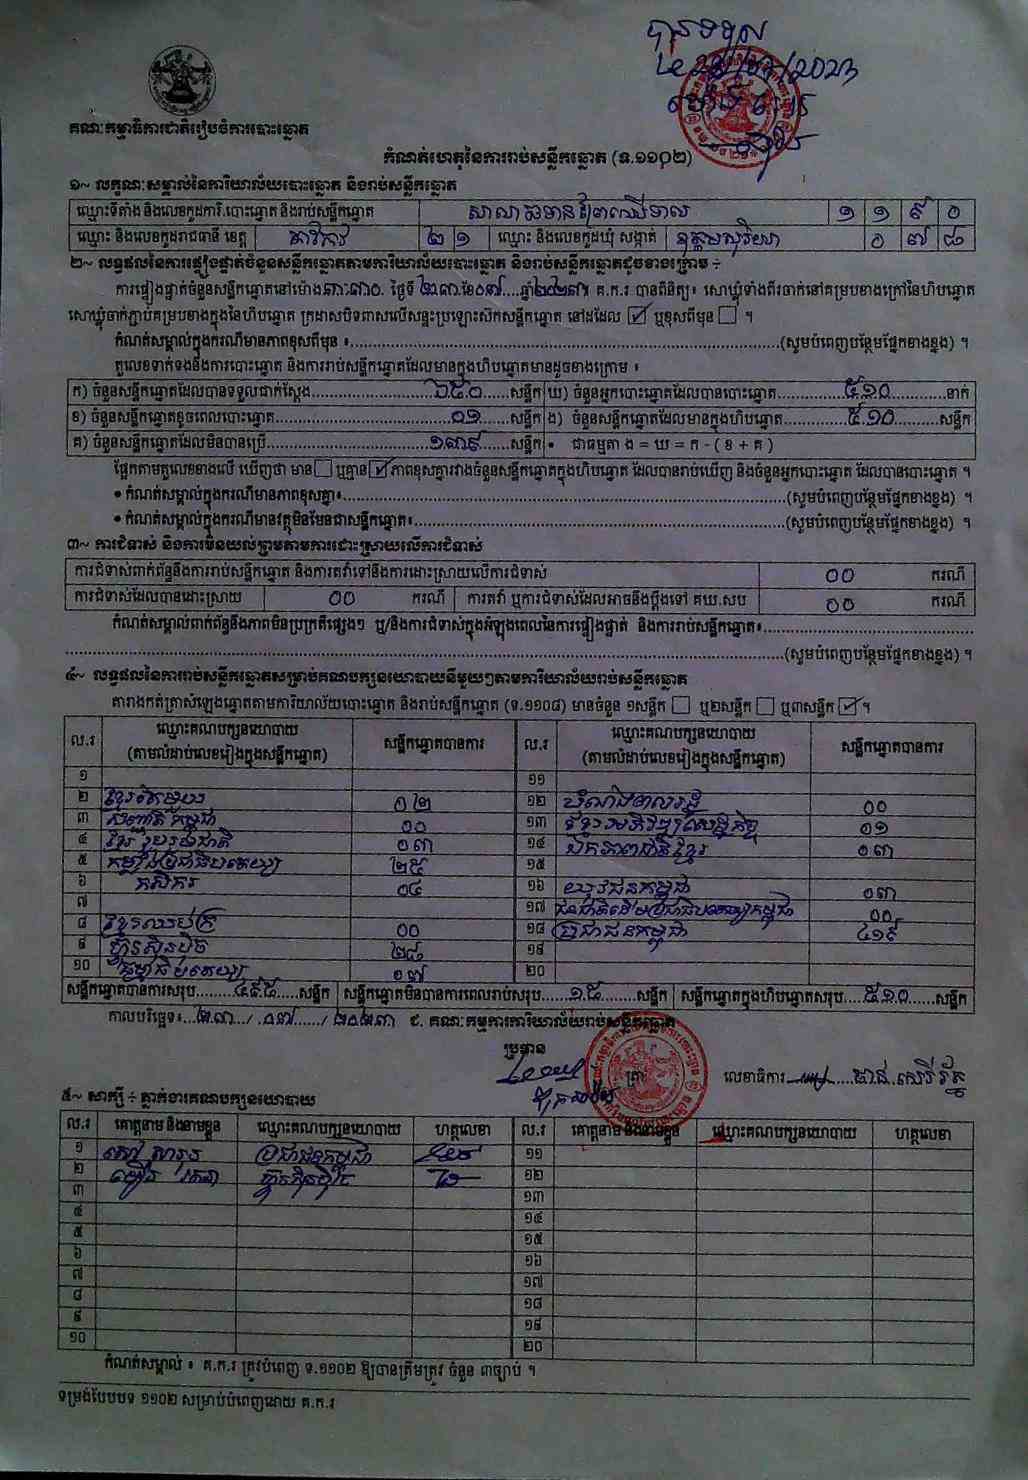 បានទទួល
គណៈកម្មាធិការជាតិរៀបចំការបោះឆ្នោត
កំណត់ហេតុនៃការរាប់សន្លឹកឆ្នោត (ទ.១១០២)
១~ លក្ខណៈសម្គាល់នៃការិយាល័យបោះឆ្នោត និងរាប់សន្លឹកឆ្នោត
ឈ្មោះទីតាំង និងលេខកូដការិ.បោះឆ្នោត និងរាប់សន្លឹកឆ្នោត ១ ១ ៩ ០
ឈ្មោះ និងលេខកូដរាជធានី ខេត្ត តាកែវ ២ ១ ឈ្មោះ និងលេខកូដឃុំ សង្កាត់ ឧត្តមសុរិយា ០ ៧ ៨
២~ លទ្ធផលនៃការផ្ទៀងផ្ទាត់ចំនួនសន្លឹកឆ្នោតតាមការិយាល័យបោះឆ្នោត និងរាប់សន្លឹកឆ្នោតដូចខាងក្រោម ÷
ការផ្ទៀងផ្ទាត់ចំនួនសន្លឹកឆ្នោតនៅម៉ោង ៣:៣០ ថ្ងៃទី ២៣ ខែ ០៧ ឆ្នាំ ២០២៣ គ.ក.រ បានពិនិត្យ៖ សោឃ្លុំទាំងពីរចាក់នៅគម្របខាងក្រៅនៃហិបឆ្នោត
សោឃ្លុំចាក់ភ្ជាប់គម្របខាងក្នុងនៃហិបឆ្នោត ក្រដាសបិទពាសលើសន្ទះប្រឡោះស៊កសន្លឹកឆ្នោត នៅដដែល ☑ ឬខុសពីមុន ☐ ។
កំណត់សម្គាល់ក្នុងករណីមានភាពខុសពីមុន ៖ (សូមបំពេញបន្ថែមផ្នែកខាងខ្នង) ។
តួលេខទាក់ទងនឹងការបោះឆ្នោត និងការរាប់សន្លឹកឆ្នោតដែលមានក្នុងហិបឆ្នោតមានដូចខាងក្រោម ៖
ក) ចំនួនសន្លឹកឆ្នោតដែលបានទទួលជាក់ស្តែង ៦៥០ សន្លឹក ឃ) ចំនួនអ្នកបោះឆ្នោតដែលបានបោះឆ្នោត ៥១០ នាក់
ខ) ចំនួនសន្លឹកឆ្នោតខូចពេលបោះឆ្នោត ០១ សន្លឹក ង) ចំនួនសន្លឹកឆ្នោតដែលមានក្នុងហិបឆ្នោត ៥១០ សន្លឹក
គ) ចំនួនសន្លឹកឆ្នោតដែលមិនបានប្រើ ១៣៩ សន្លឹក • ជាធម្មតា ង = ឃ = ក - ( ខ + គ )
ផ្អែកតាមតួលេខខាងលើ ឃើញថា មាន ☐ ឬគ្មាន ☑ ភាពខុសគ្នារវាងចំនួនសន្លឹកឆ្នោតក្នុងហិបឆ្នោត ដែលបានរាប់ឃើញ និងចំនួនអ្នកបោះឆ្នោត ដែលបានបោះឆ្នោត ។
• កំណត់សម្គាល់ក្នុងករណីមានភាពខុសគ្នា៖ (សូមបំពេញបន្ថែមផ្នែកខាងខ្នង) ។
• កំណត់សម្គាល់ក្នុងករណីមានវត្ថុមិនមែនជាសន្លឹកឆ្នោត៖ (សូមបំពេញបន្ថែមផ្នែកខាងខ្នង) ។
៣~ ការជំទាស់ និងការមិនយល់ព្រមតាមការដោះស្រាយលើការជំទាស់
ការជំទាស់ពាក់ព័ន្ធនឹងការរាប់សន្លឹកឆ្នោត និងការតវ៉ាទៅនឹងការដោះស្រាយលើការជំទាស់ ០០ ករណី
ការជំទាស់ដែលបានដោះស្រាយ ០០ ករណី ការតវ៉ា ឬការជំទាស់ដែលអាចនឹងប្តឹងទៅ គឃ.សប ០០ ករណី
កំណត់សម្គាល់ពាក់ព័ន្ធនឹងភាពមិនប្រក្រតីផ្សេងៗ ឬ/និងការជំទាស់ក្នុងអំឡុងពេលនៃការផ្ទៀងផ្ទាត់ និងការរាប់សន្លឹកឆ្នោត៖
(សូមបំពេញបន្ថែមផ្នែកខាងខ្នង) ។
៤~ លទ្ធផលនៃការរាប់សន្លឹកឆ្នោតសម្រាប់គណបក្សនយោបាយនីមួយៗតាមការិយាល័យរាប់សន្លឹកឆ្នោត
តារាងកត់ត្រាសំឡេងឆ្នោតតាមការិយាល័យបោះឆ្នោត និងរាប់សន្លឹកឆ្នោត (ទ.១១០៨) មានចំនួន ១សន្លឹក ☐ ឬ២សន្លឹក ☐ ឬ៣សន្លឹក ☑ ។
ល.រ ឈ្មោះគណបក្សនយោបាយ (តាមលំដាប់លេខរៀងក្នុងសន្លឹកឆ្នោត) សន្លឹកឆ្នោតបានការ ល.រ ឈ្មោះគណបក្សនយោបាយ (តាមលំដាប់លេខរៀងក្នុងសន្លឹកឆ្នោត) សន្លឹកឆ្នោតបានការ
១ ១១
២ ខ្មែរតែមួយ ០២ ១២ សំណាងមាលរដ្ឋ ០០
៣ សញ្ជាតិកម្ពុជា ១០ ១៣ ខ្មែរអភិវឌ្ឍន៍សេដ្ឋកិច្ច ០១
៤ ខ្មែររួបរួមជាតិ ០៣ ១៤ ឯកភាពជាតិខ្មែរ ០៣
៥ កម្លាំងប្រជាធិបតេយ្យ ២៥ ១៥
៦ កសិករ ០៤ ១៦ យុវជនកម្ពុជា ០៣
៧ ១៧ ជនជាតិដើមប្រជាធិបតេយ្យកម្ពុជា ០០
៨ ខ្មែរឈប់ក្រ ០០ ១៨ ប្រជាជនកម្ពុជា ៤១៩
៩ ហ៊្វុនស៊ិនប៉ិច ២៨ ១៩
១០ ធម្មាធិបតេយ្យ ០៧ ២០
សន្លឹកឆ្នោតបានការសរុប ៤៩៥ សន្លឹក សន្លឹកឆ្នោតមិនបានការពេលរាប់សរុប ១៥ សន្លឹក សន្លឹកឆ្នោតក្នុងហិបឆ្នោតសរុប ៥១០ សន្លឹក
កាលបរិច្ឆេទ៖ ២៣ / ០៧ / ២០២៣ ជ. គណៈកម្មការការិយាល័យរាប់សន្លឹកឆ្នោត
ប្រធាន
ត្រា លេខាធិការ
៥~ សាក្សី ÷ ភ្នាក់ងារគណបក្សនយោបាយ
ល.រ គោត្តនាម និងនាមខ្លួន ឈ្មោះគណបក្សនយោបាយ ហត្ថលេខា ល.រ គោត្តនាម និងនាមខ្លួន ឈ្មោះគណបក្សនយោបាយ ហត្ថលេខា
១ ប្រជាជនកម្ពុជា ១១
២ ហ៊្វុនស៊ិនប៉ិច ១២
៣ ១៣
៤ ១៤
៥ ១៥
៦ ១៦
៧ ១៧
៨ ១៨
៩ ១៩
១០ ២០
កំណត់សម្គាល់ ៖ គ.ក.រ ត្រូវបំពេញ ទ.១១០២ ឱ្យបានត្រឹមត្រូវ ចំនួន ៣ច្បាប់ ។
ទម្រង់បែបបទ ១១០២ សម្រាប់បំពេញដោយ គ.ក.រ